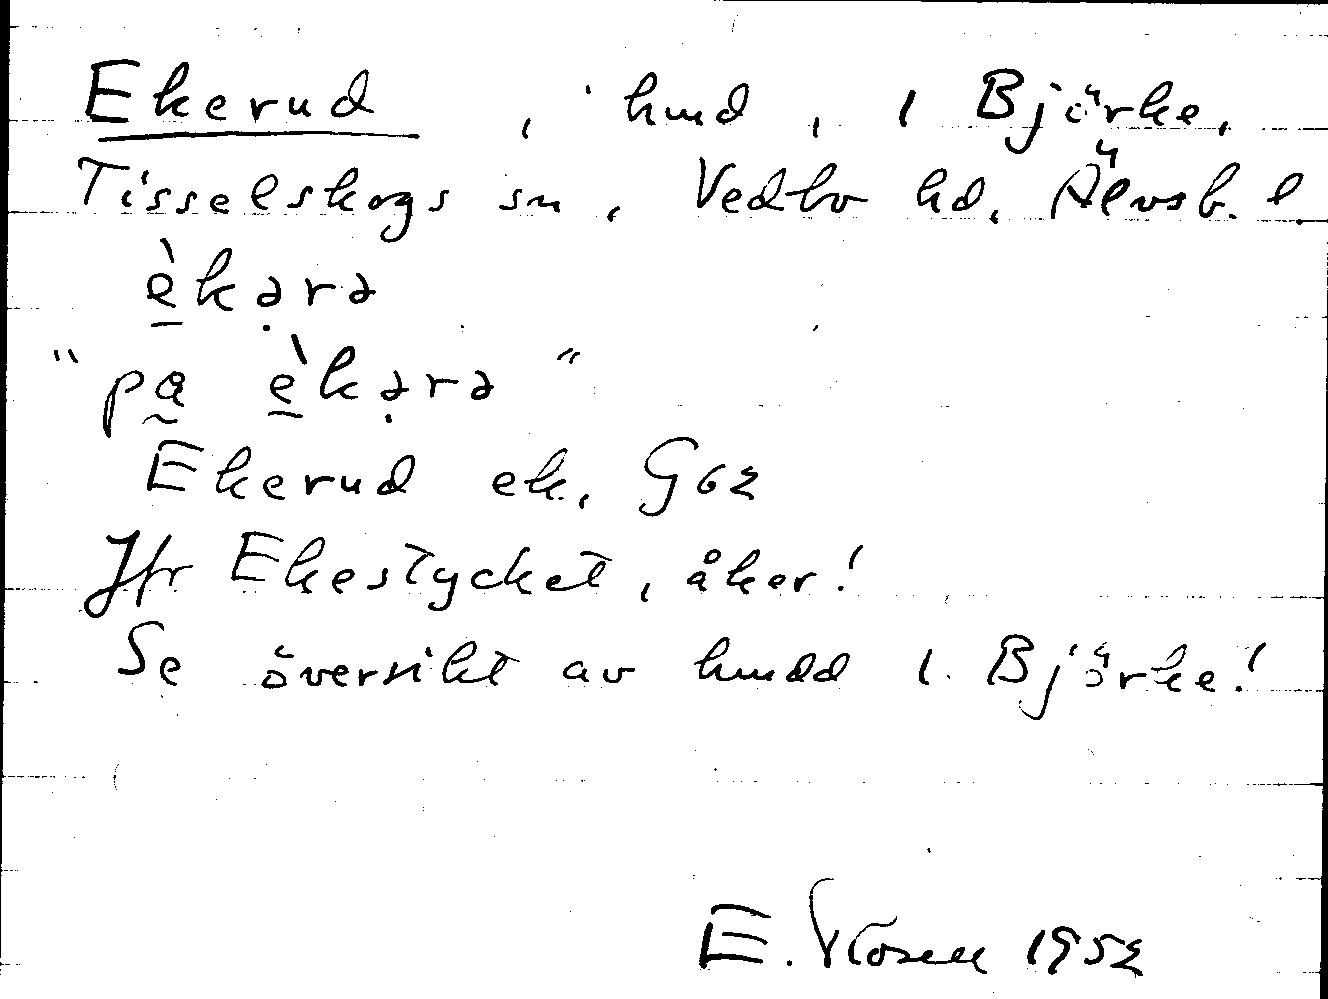 Ekerud, hmd, i Björke,
Tisselskogs sn, Vedbo hd, Älvsb. l.
è̱kə̣rə
"pa̰ è̱kə̣rə"
Ekerud ek. G62
Jfr Ekestycket, åker!
Se översikt av hmdd i Björke!
E. 1952